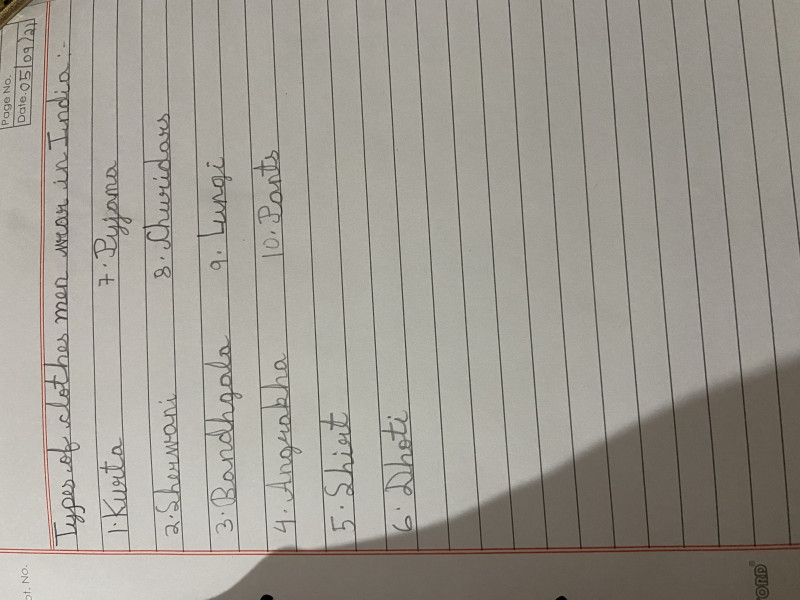 Page No.
Date. 05/09/21
Types of clothes men wear in India :-
1. Kurta
2. Sherwani
3. Bandhgala
4. Angrakha
5. Shirt
6. Dhoti
7. Pyjama
8. Churidars
9. Lungi
10. Pants